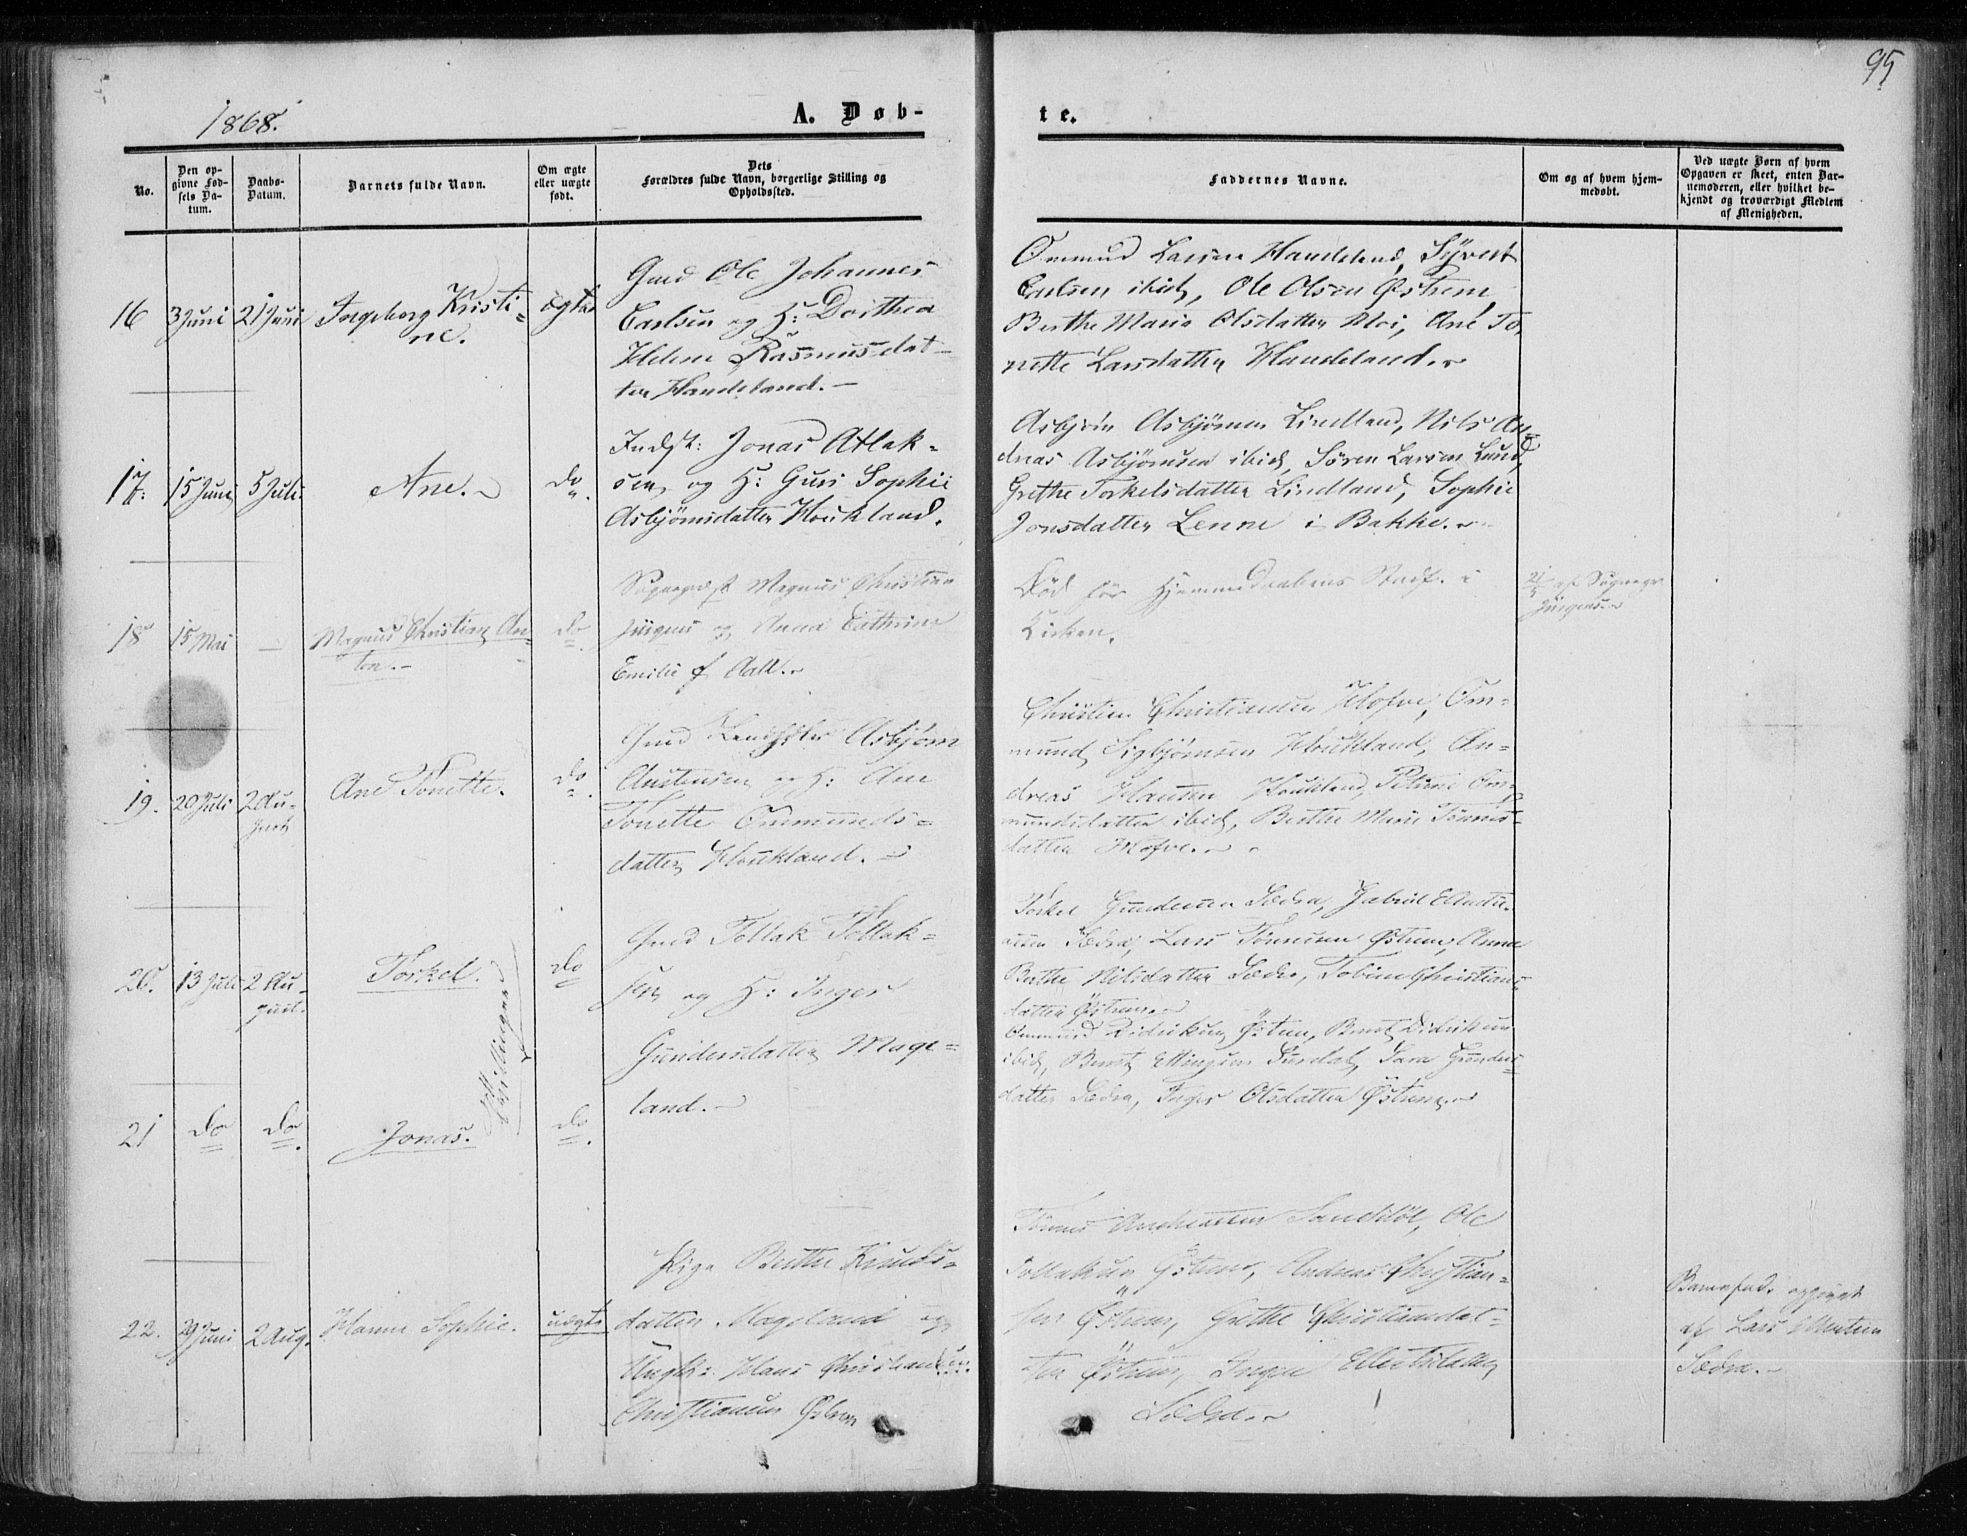 95
1868.
A. Døb-
te.
No.
Den op-
givne Fød-
sels Da-
tum.
Daabs-
Datum.
Barnets fulde Navn.
Om ægte
eller uægte
født.
Dets
Forældres fulde Navn, borgerlige Stilling og
Opholdssted.
Faddernes Navne.
Om og af hvem hjem-
medøbt.
Ved uægte Børn af hvem
Opgaven er skeet, enten Bar-
nemoderen, eller hvilket be-
kjendt og troværdigt Medlem
af Menigheden.
16
3 Juni
21 Juni
Ingeborg Kristi-
ne.
ægte
Gmd Ole Johannes
Carlsen og H: Dorthea
Helene Rasmusdat-
ter Handeland.
Ommund Larsen Handeland, Syvert
Carlsen ibid, Ole Olsen Østrem,
Berthe Maria Olsdatter Moi, Ane To-
nette Larsdatter Handeland.
17.
15 Juni
5 Juli
Ane.
do
Indst: Jonas Atlak-
sen og H: Guri Sophie
Asbjørnsdatter Houkland.
Asbjørn Asbjørnsen Lindland, Nils An-
dreas Asbjørnsen ibid, Søren Larsen Lund,
Grethe Torkelsdatter Lindland, Sophie
Jonsdatter Lenne i Bakke.
18
15 Mai
Magnus Christian An-
ton.
do
Sognepræst Magnus Christian
Jürgens og Anna Cathrine
Emilie f Aall.
Død før Hjemmedaabens Stadf. i
Kirken.
21/5 af Sognepr
Jürgens
19.
20 Juli
2 Au-
gust
Ane Tonette.
do
Gmd Asbjørn
Austensen og H: Ane
Tonette Ommunds-
datter Houkland.
Christen Christiansen Mofve, Om-
mund Sigbjørnsen Houkland, An-
dreas Hansen Houkland, Petrine Om-
mundsdatter ibid, Berthe Marie Tønnes-
datter Mofve.
20.
13 Juli
2 Au-
gust.
Torkel.
Tvillinger
do
Gmd Tollak Tollak-
sen og H: Inger
Gundersdatter Mage-
land.
Torkel Gundersen Sædra, Gabriel
Sædra, Lars Tønnesen Østrem, Anna
Berthe Nilsdatter Sædra, Tobine Christians-
datter Østrem
Ommund Didriksen Østrem, Bernt Didriksen
ibid, Bernt Surdal, Sara Gunders-
datter Sædra, Inger Olsdatter Østrem.
21
do
do
Jonas.
do
22.
29 Juni
2 Aug.
Hanne Sophie.
uægte
Pige Berthe Knuds-
datter Mageland og
Ungk: Hans Christian
Christiansen Østrem
Tønnes Andreassen Sandsløt, Ole
Tollaksen Østrem, Andreas Christian-
sen Østrem, Grethe Christiansdat-
ter Østrem, Inger
Sædra.
Barnefad. opgivet
af Lars
Sædra.